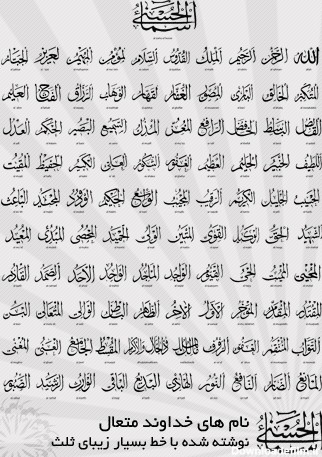 أسماء الحسنى
الله الرحمن الرحيم الملك القدوس السلام المؤمن المهيمن العزيز الجبار
المتكبر الخالق البارئ المصور الغفار القهار الوهاب الرزاق الفتاح العليم
القابض الباسط الخافض الرافع المعز المذل السميع البصير الحكم العدل
اللطيف الخبير الحليم العظيم الغفور الشكور العلي الكبير الحفيظ المقيت
الحسيب الجليل الكريم الرقيب المجيب الواسع الحكيم الودود المجيد الباعث
الشهيد الحق الوكيل القوي المتين الولي الحميد المحصي المبدئ المعيد
المحيي المميت الحي القيوم الواجد الماجد الواحد الأحد الصمد القادر
المقتدر المقدم المؤخر الأول الآخر الظاهر الباطن الوالي المتعالي البر
التواب المنتقم العفو الرؤوف مالك الملك ذو الجلال والإكرام المقسط الجامع الغني المغني
المانع الضار النافع النور الهادي البديع الباقي الوارث الرشيد الصبور
نام های خداوند متعال
نوشته شده با خط بسیار زیبای ثلث